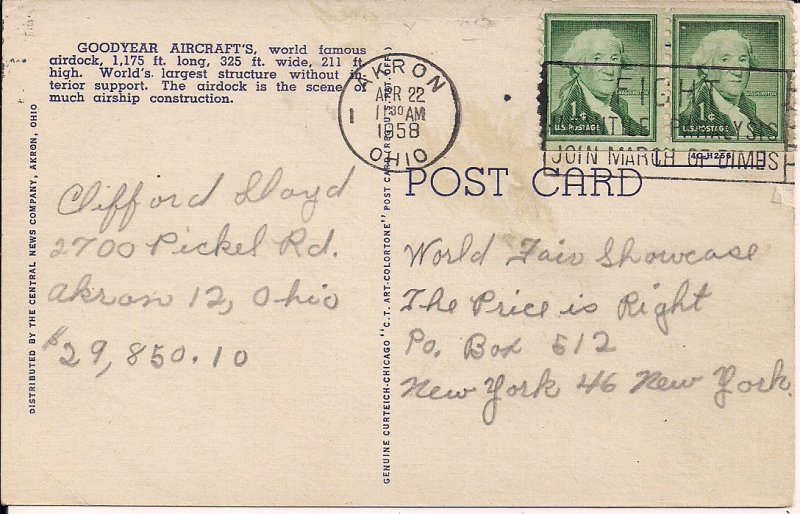 GOODYEAR AIRCRAFT'S, world famous
airdock, 1,175 ft. long, 325 ft. wide, 211 ft.
high. World's largest structure without in-
terior support. The airdock is the scene of
much airship construction.
DISTRIBUTED BY THE CENTRAL NEWS COMPANY, AKRON, OHIO
Clifford Lloyd
2700 Pickel Rd.
Akron 12, Ohio
$29,850.10
GENUINE CURTEICH-CHICAGO "C.T. ART-COLORTONE" POST CARD (REG. U.S. PAT. OFF.)
AKRON
APR 22
11 30 AM
1
1958
OHIO
1¢
U.S. POSTAGE
1¢
U.S. POSTAGE
FIGHT
PARALYSIS
JOIN MARCH OF DIMES
POST CARD
World Fair Showcase
The Price is Right
Po. Box 512
New York 46 New York.